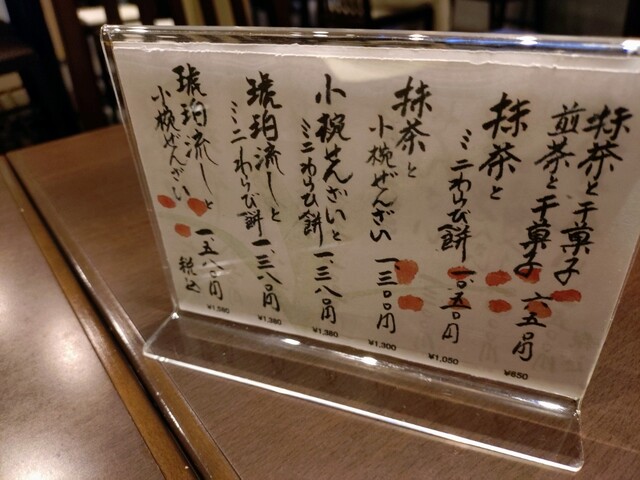 抹茶と干菓子
煎茶と干菓子 六五〇円
¥650
抹茶と
ミニわらび餅 一〇五〇円
¥1,050
抹茶と
小椀ぜんざい 一、三〇〇円
¥1,300
小椀ぜんざいと
ミニわらび餅 一、三八〇円
¥1,380
琥珀流しと
ミニわらび餅 一、三八〇円
¥1,380
琥珀流しと
小椀ぜんざい 一、五八〇円
¥1,580
税込